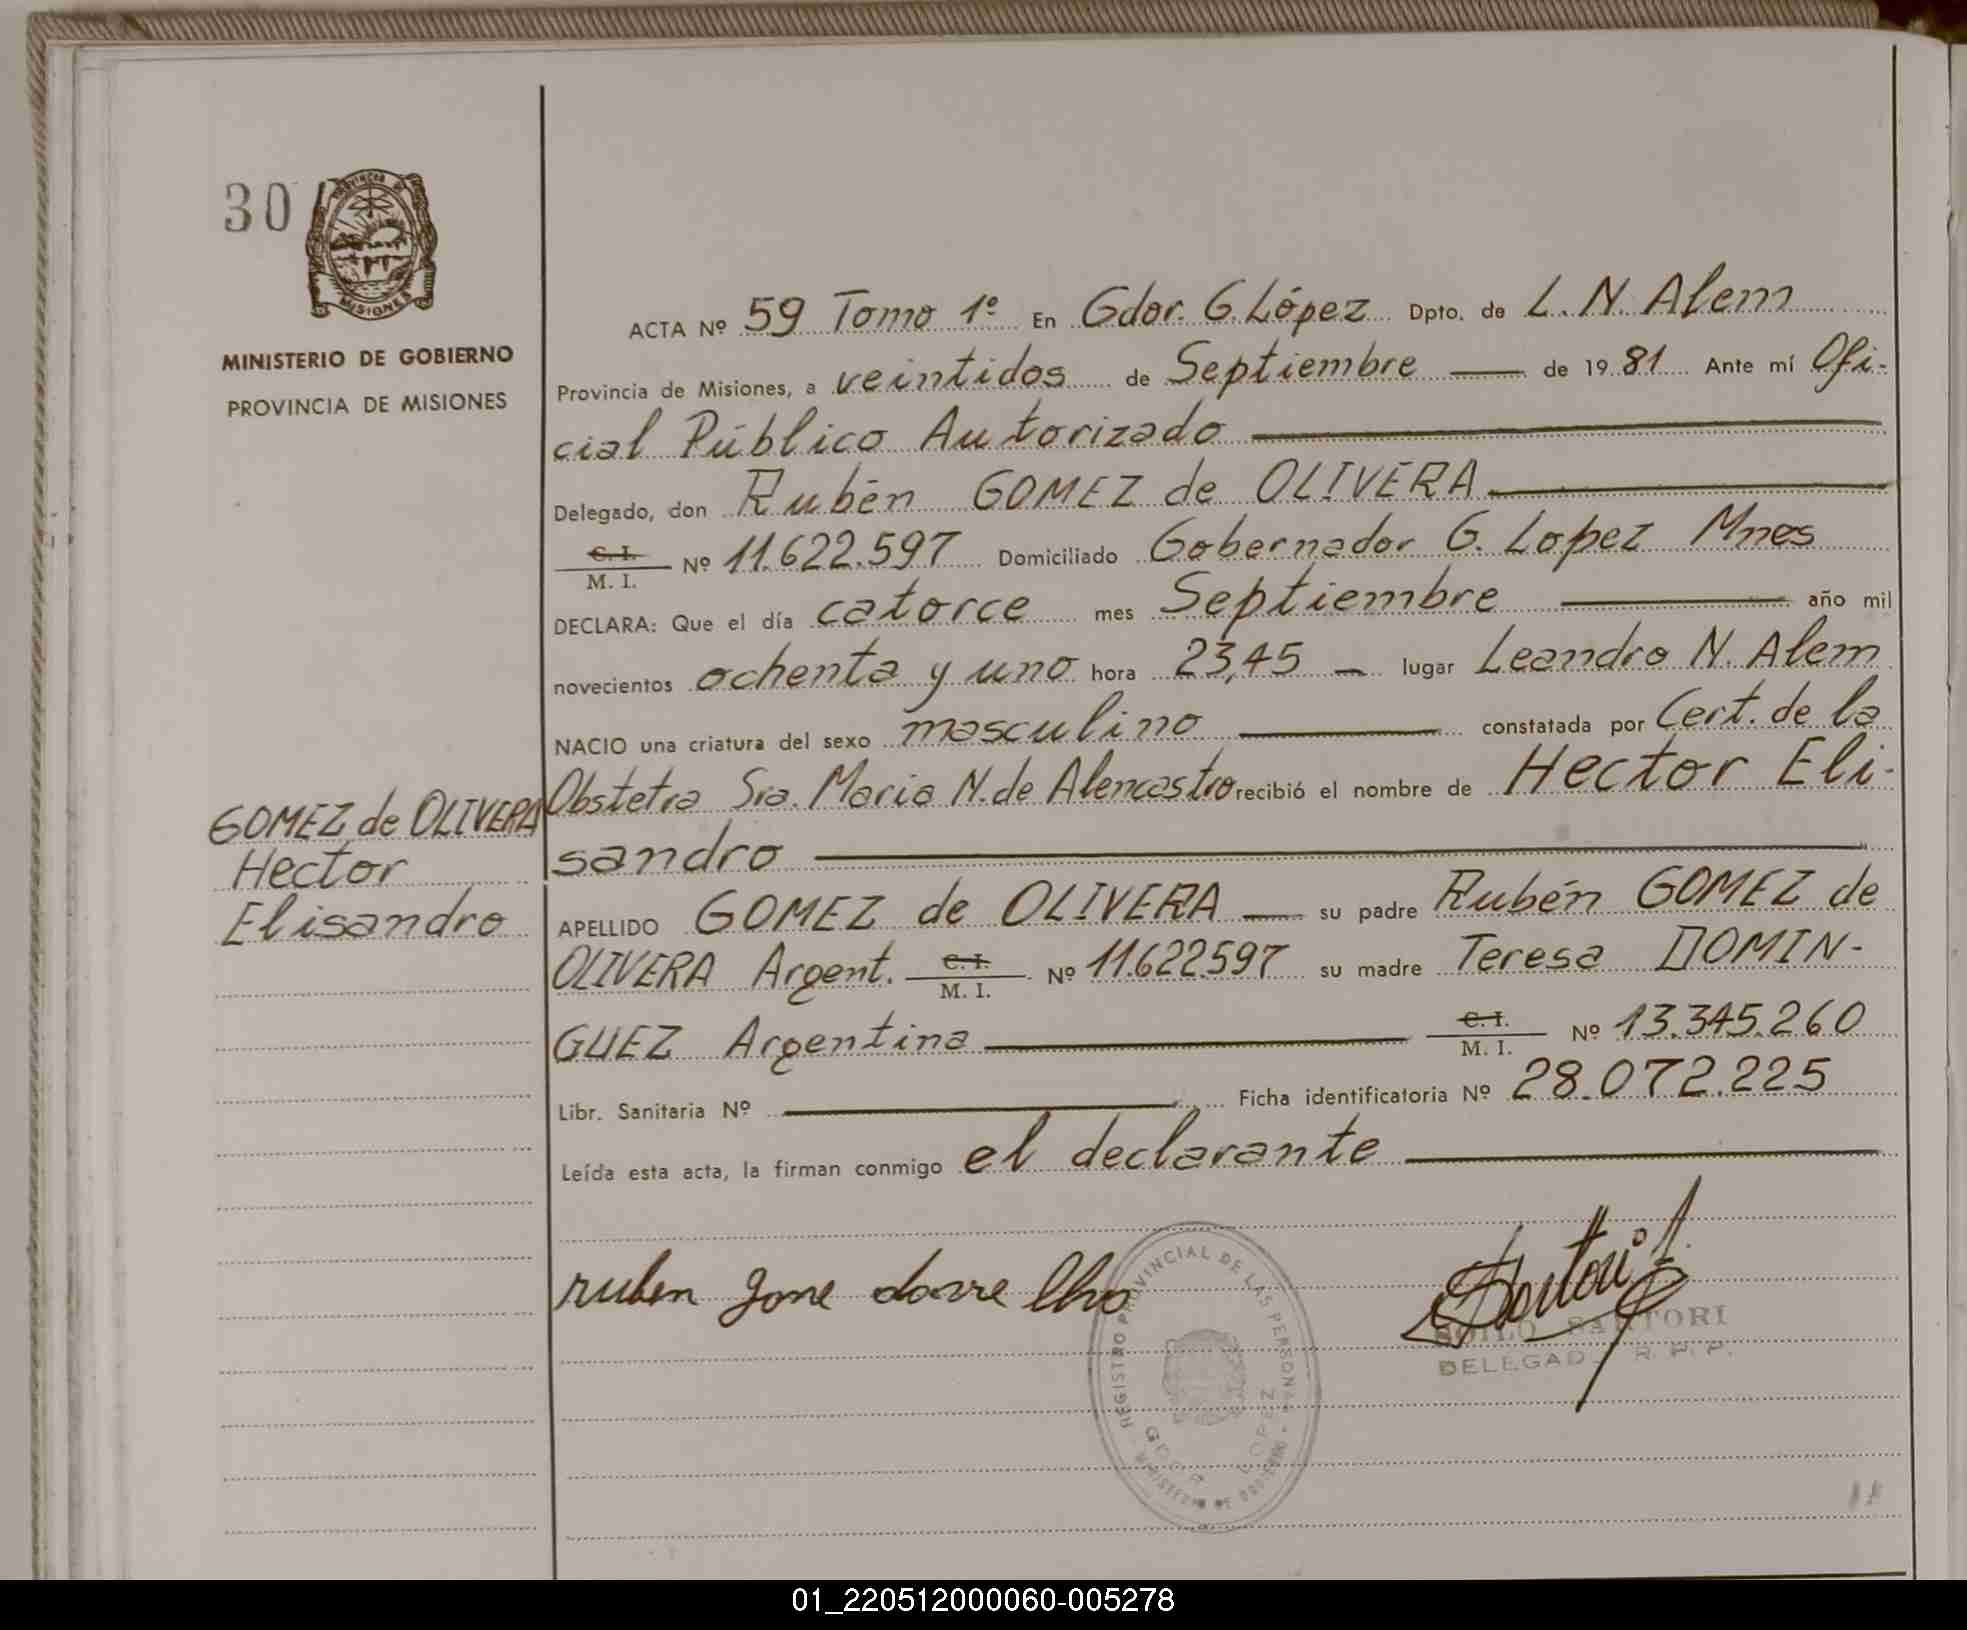 30
PROVINCIA DE
MISIONES
MINISTERIO DE GOBIERNO
PROVINCIA DE MISIONES
ACTA Nº 59 Tomo 1º En Gdor. G. López Dpto. de L. N. Alem
Provincia de Misiones, a veintidos de Septiembre de 1981 Ante mí Ofi-
cial Público Autorizado
Delegado, don Rubén GOMEZ de OLIVERA
C. I.
M. I. Nº 11.622.597 Domiciliado Gobernador G. Lopez Mnes
DECLARA: Que el día catorce mes Septiembre año mil
novecientos ochenta y uno hora 23,45 lugar Leandro N. Alem
NACIO una criatura del sexo masculino constatada por Cert. de la
Obstetra Sra. Maria N. de Alencastro recibió el nombre de Hector Eli-
sandro
GOMEZ de OLIVERA
Hector
Elisandro
APELLIDO GOMEZ de OLIVERA su padre Rubén GOMEZ de
OLIVERA Argent. C. I. M. I. Nº 11.622.597 su madre Teresa DOMIN-
GUEZ Argentina C. I. M. I. Nº 13.345.260
Libr. Sanitaria Nº Ficha identificatoria Nº 28.072.225
Leída esta acta, la firman conmigo el declarante
ruben
Sartori
SARTORI
DELEGADO R. P. P.
REGISTRO PROVINCIAL DE LAS PERSONAS
MINISTERIO DE GOBIERNO
LOPEZ
01_220512000060-005278